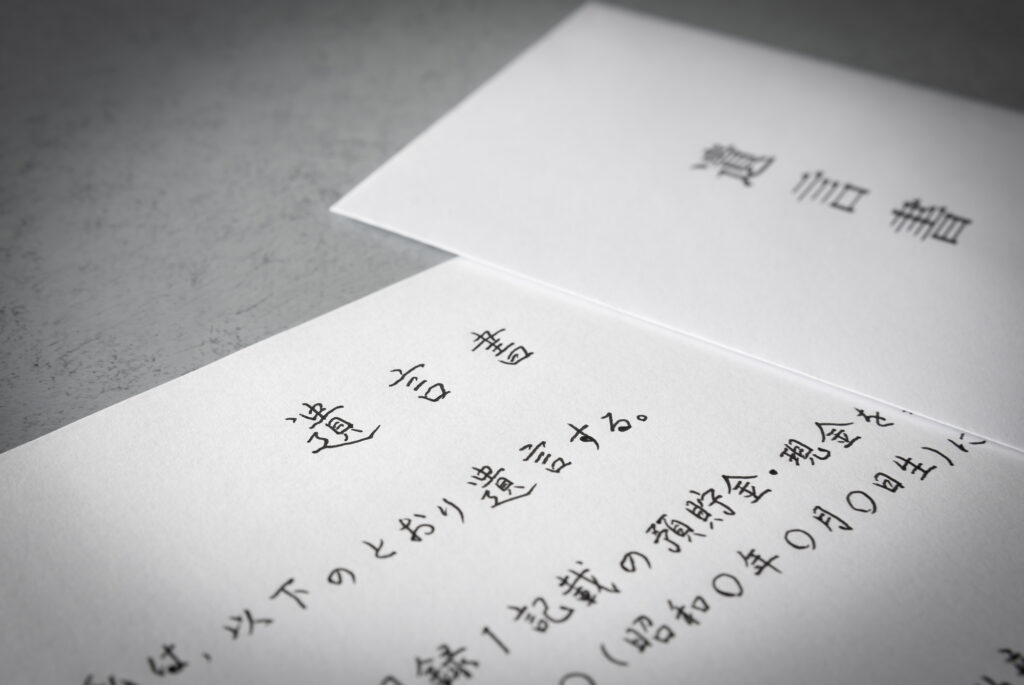 遺言書
遺言書
私は、以下のとおり遺言する。
録1記載の預貯金・現金を、
○(昭和○年○月○日生)に